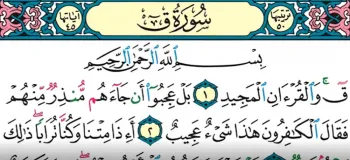 ترتيبها ٥٠ سُورَةُ قٓ آياتها ٤٥
بِسْمِ ٱللَّهِ ٱلرَّحْمَٰنِ ٱلرَّحِيمِ
قٓ ۚ وَٱلْقُرْءَانِ ٱلْمَجِيدِ ١ بَلْ عَجِبُوٓا۟ أَن جَآءَهُم مُّنذِرٌ مِّنْهُمْ
فَقَالَ ٱلْكَٰفِرُونَ هَٰذَا شَىْءٌ عَجِيبٌ ٢ أَءِذَا مِتْنَا وَكُنَّا تُرَابًا ۖ ذَٰلِكَ